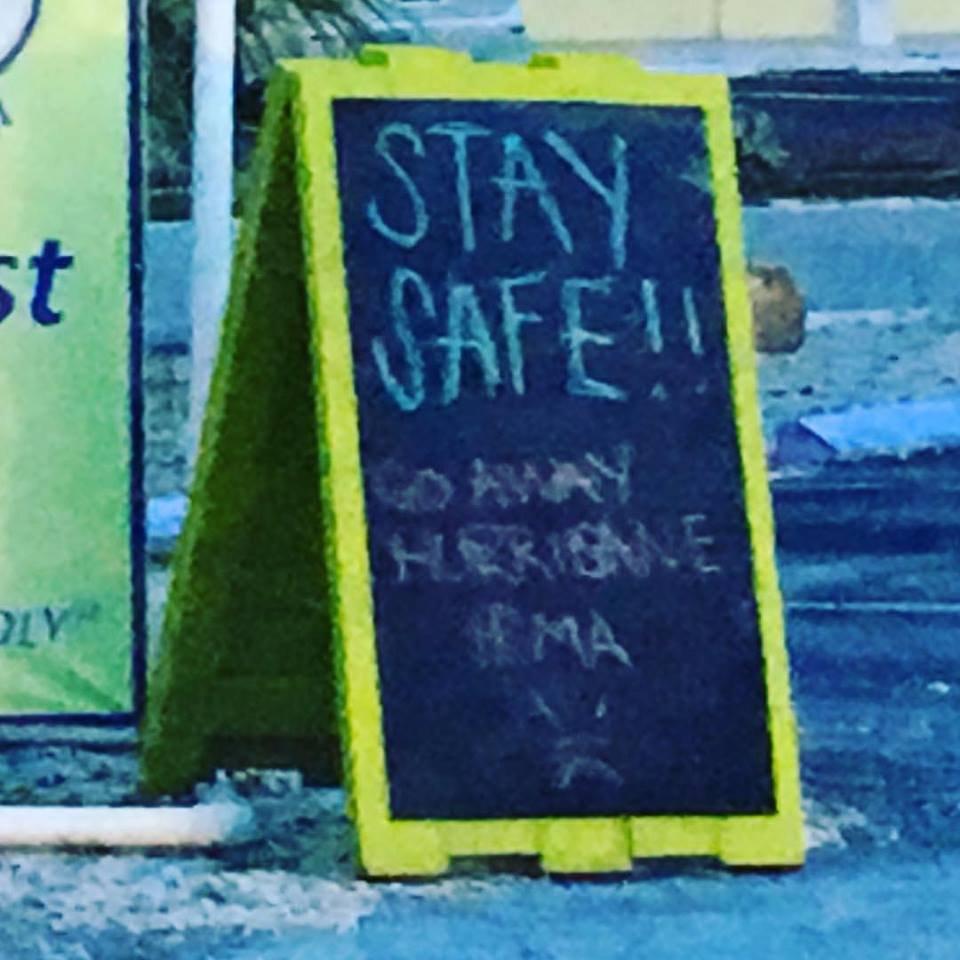 st
DLY
STAY
SAFE!!
GO AWAY
HURRICANE
IRMA